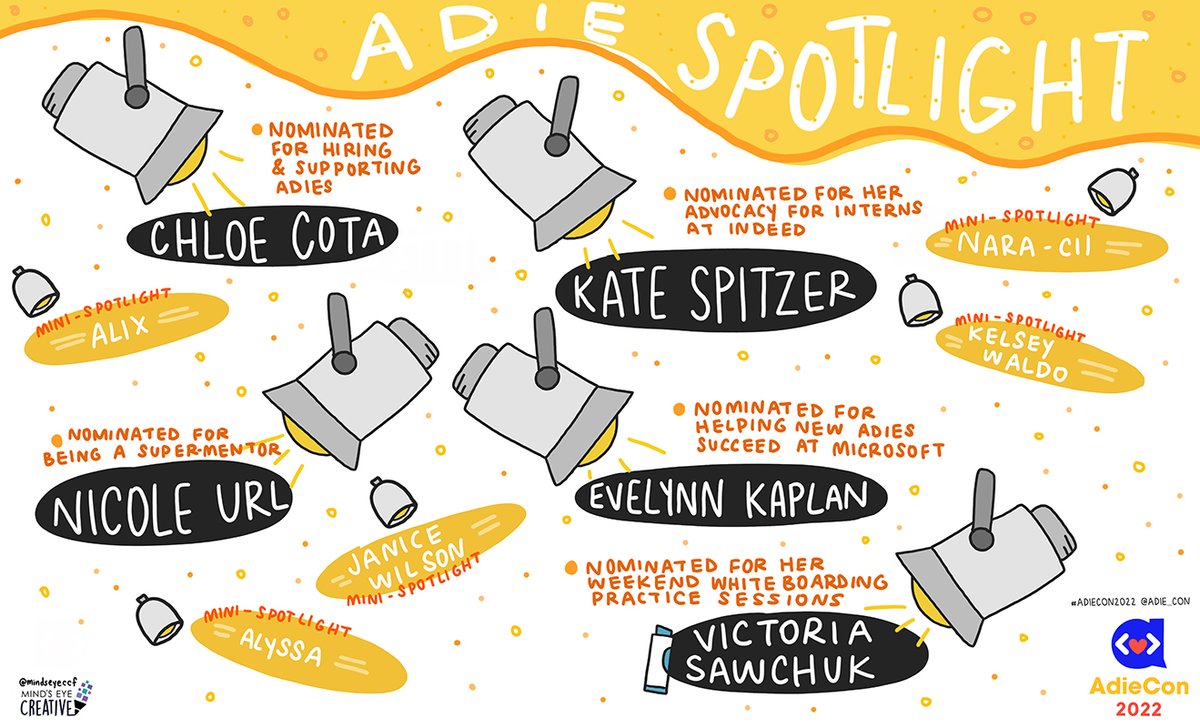 ADIE SPOTLIGHT
• NOMINATED
FOR HIRING
& SUPPORTING
ADIES
CHLOE COTA
• NOMINATED FOR HER
ADVOCACY FOR INTERNS
AT INDEED
KATE SPITZER
MINI-SPOTLIGHT
NARA-C11
MINI-SPOTLIGHT
ALIX
MINI-SPOTLIGHT
KELSEY
WALDO
• NOMINATED FOR
BEING A SUPER-MENTOR
NICOLE URL
• NOMINATED FOR
HELPING NEW ADIES
SUCCEED AT MICROSOFT
EVELYNN KAPLAN
JANICE
WILSON
MINI-SPOTLIGHT
• NOMINATED FOR HER
WEEKEND WHITEBOARDING
PRACTICE SESSIONS
VICTORIA
SAWCHUK
MINI-SPOTLIGHT
ALYSSA
#ADIECON2022 @ADIE_CON
AdieCon
2022
@mindseyeccf
MIND'S EYE
CREATIVE